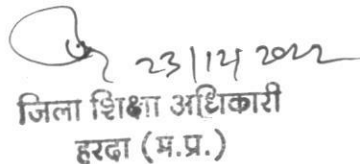 23/12/2022
जिला शिक्षा अधिकारी
हरदा (म.प्र.)